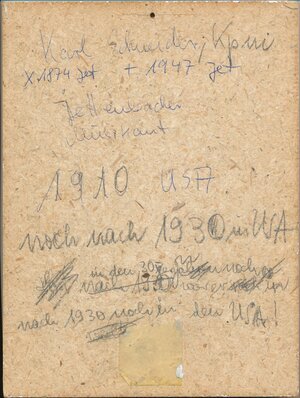 Karl Schneider, Kpm
X 1874 Jet + 1947 Jet
Jettenbacher
Musikant
1910 USA
noch nach 1930 in USA
in den 30er
nach 1930 war er
nach 1930 noch in den USA!